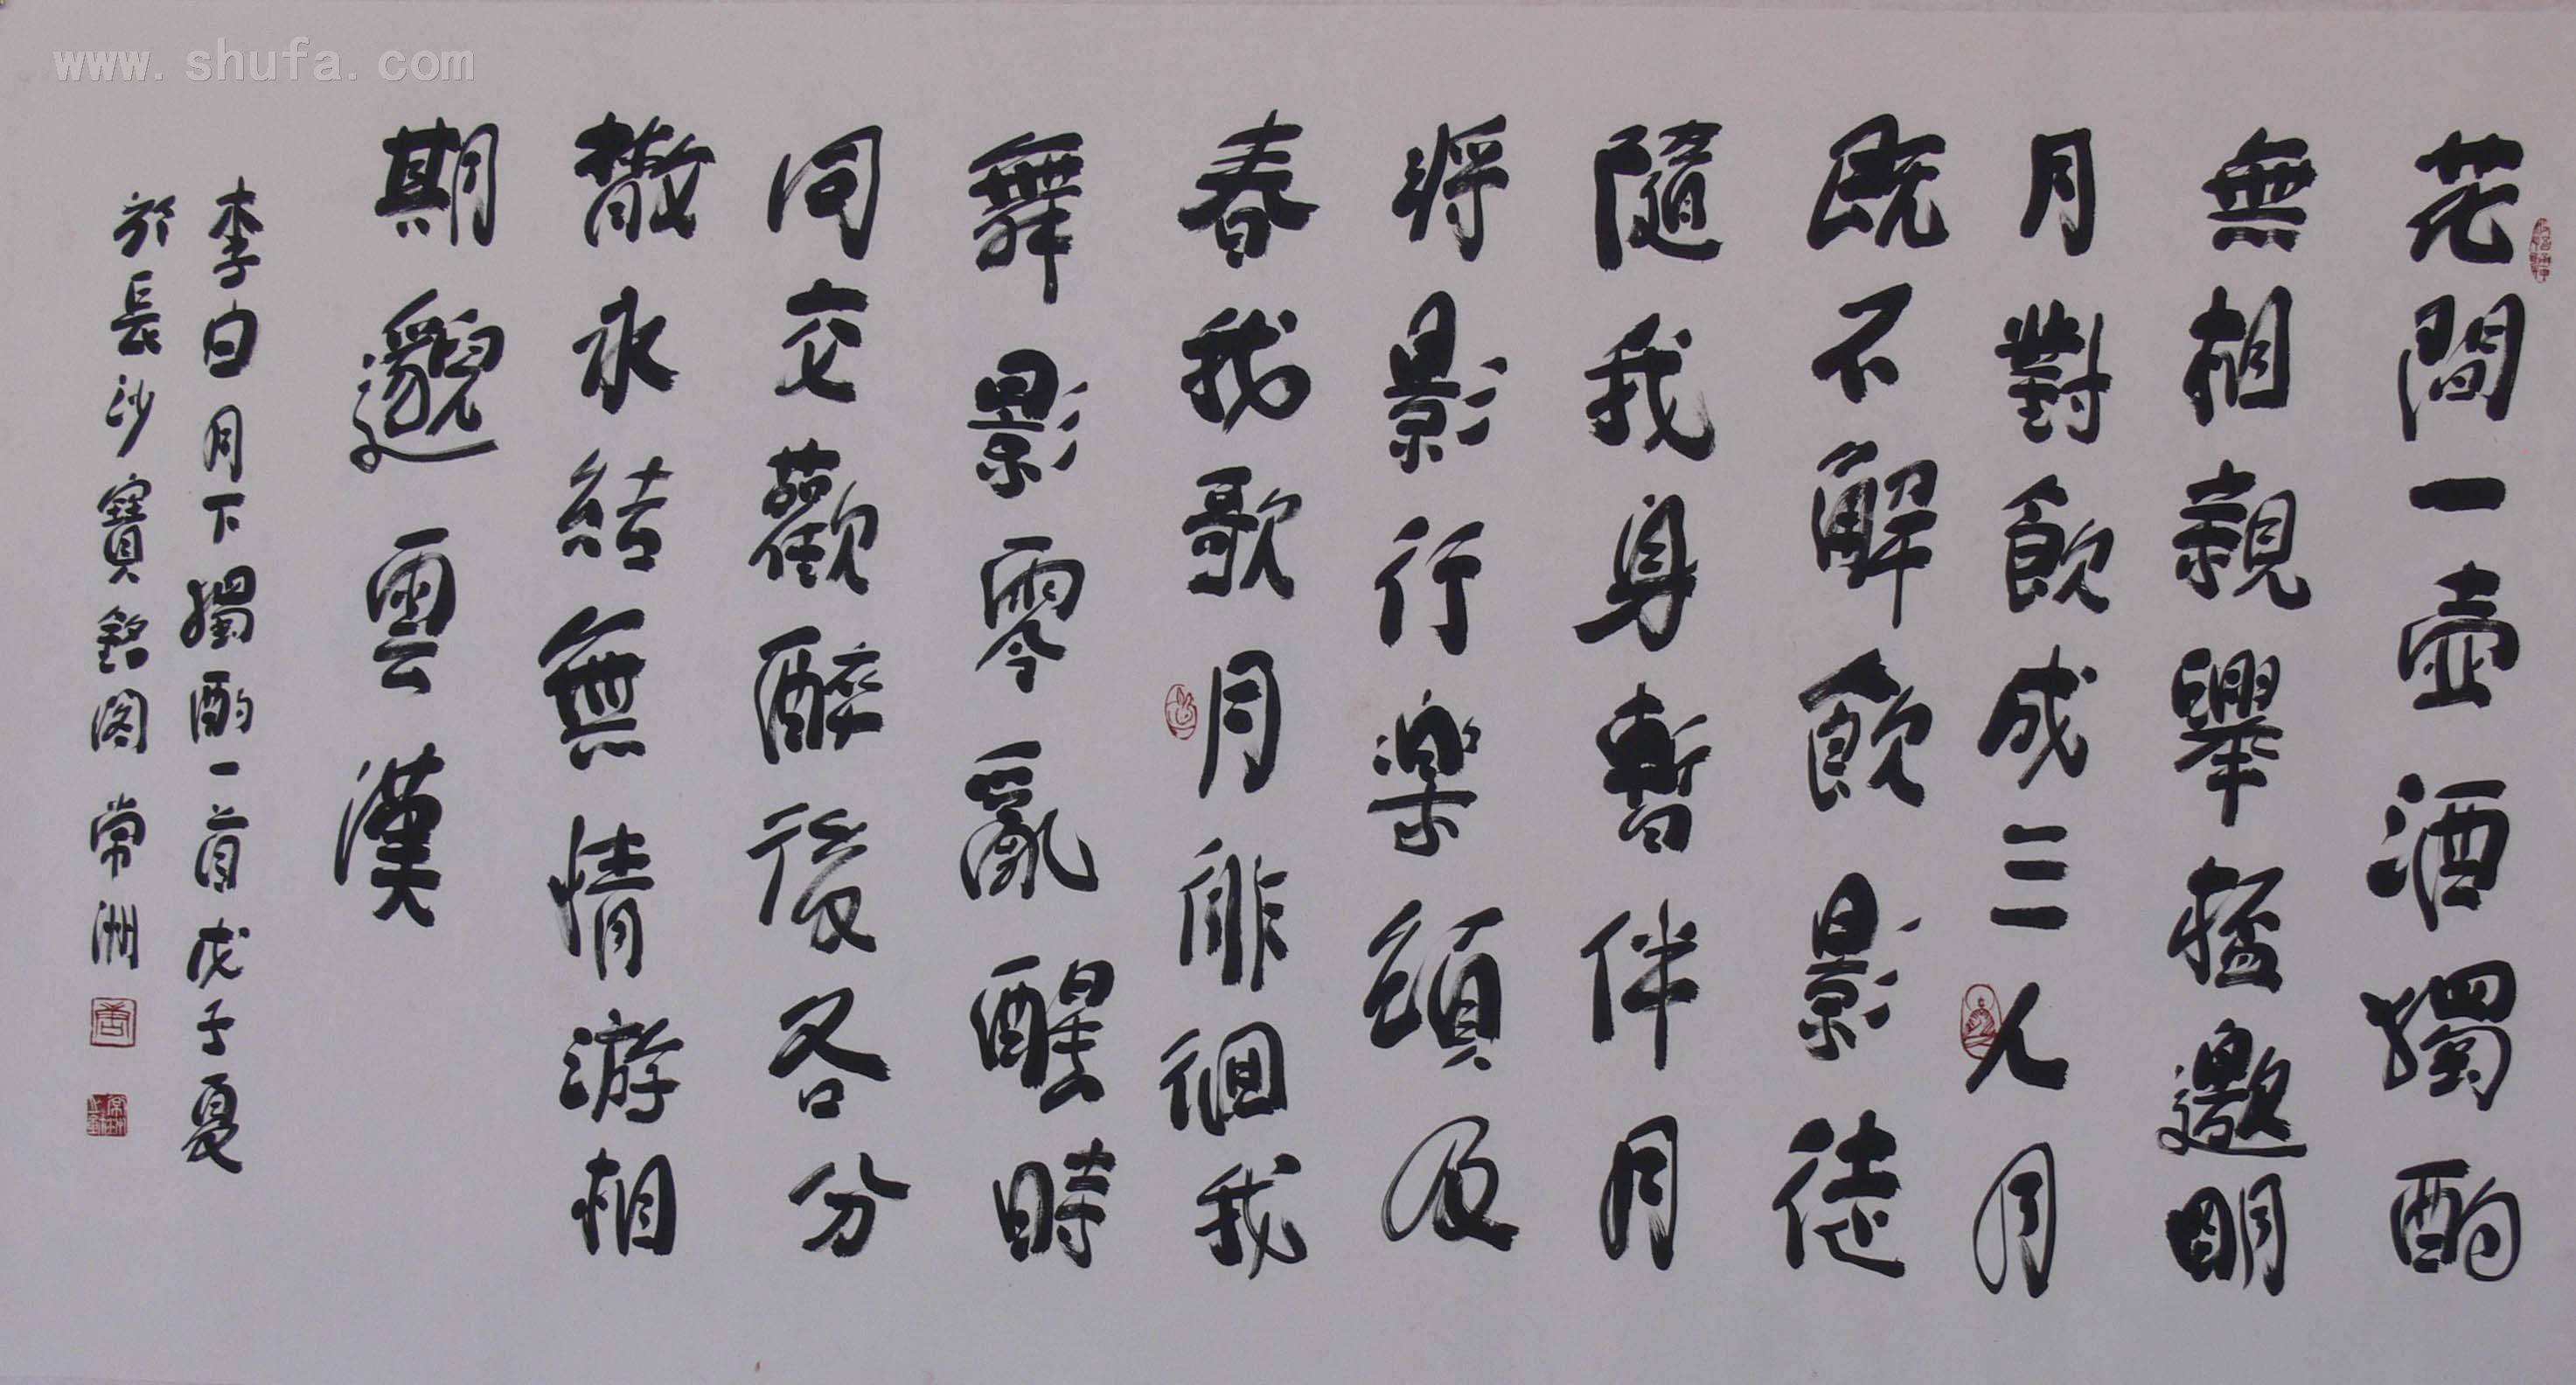 www.shufa.com
花間一壺酒獨酌
無相親舉杯邀明
月對飲成三人月
既不解飲影徒
隨我身暫伴月
將影行楽須及
春我歌月徘徊我
舞影零亂醒時
同交歡醉後各分
散永結無情游相
期邈雲漢
李白月下獨酌一首戊子夏
於長沙寶銘閣常洲